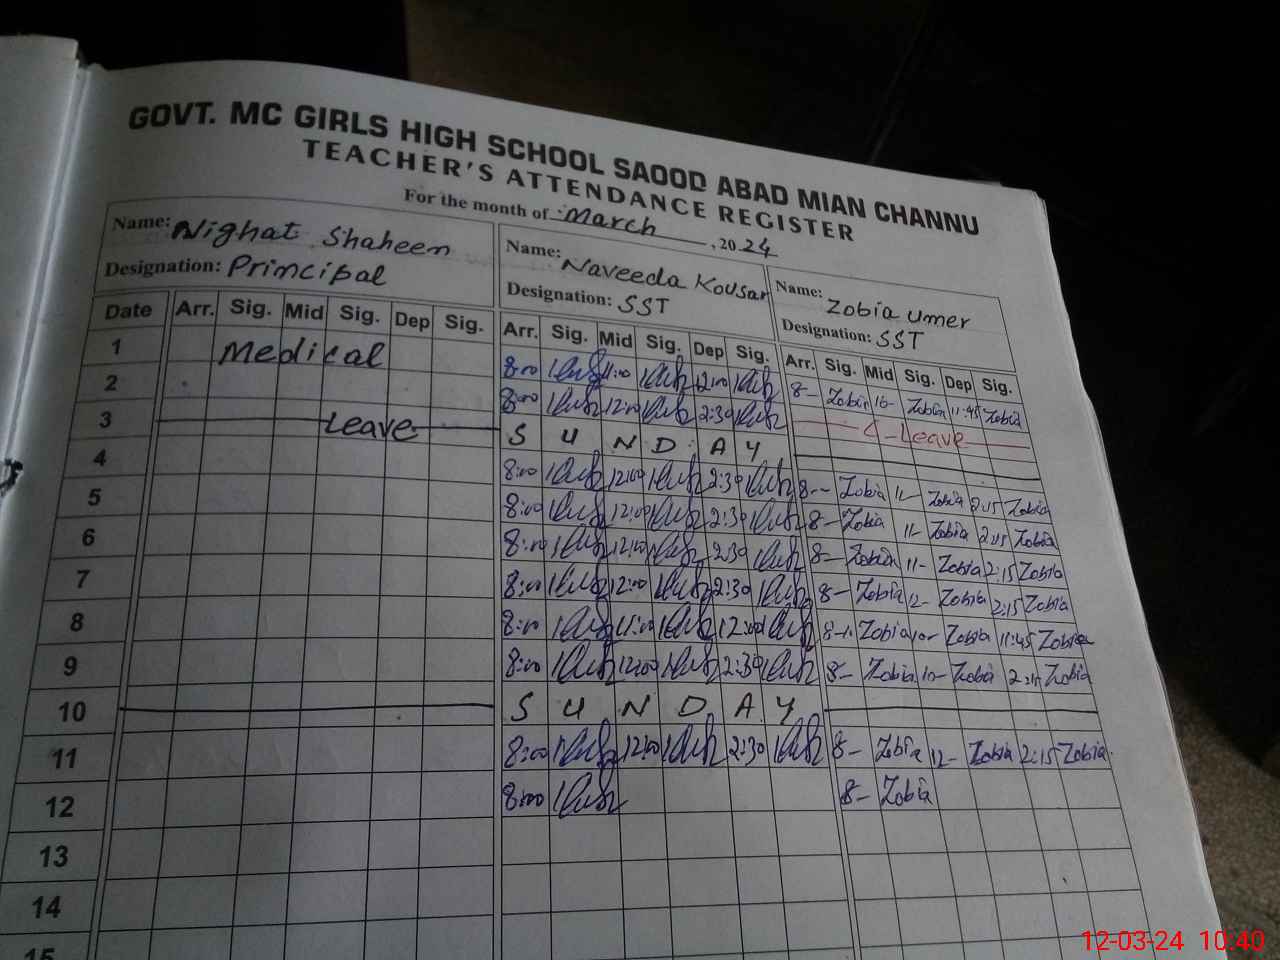 GOVT. MC GIRLS HIGH SCHOOL SAOOD ABAD MIAN CHANNU
TEACHER'S ATTENDANCE REGISTER
For the month of March, 2024
Name: Nighat Shaheen
Designation: Principal
Name: Naveeda Kousar
Designation: SST
Name: Zobia Umer
Designation: SST
Date Arr. Sig. Mid Sig. Dep Sig. Arr. Sig. Mid Sig. Dep Sig. Arr. Sig. Mid Sig. Dep Sig.
1 Medical 8:00 11:00 12:00 8- Zobia 10- Zobia 11:45 Zobia
2 8:00 12:00 2:30 C-Leave
3 Leave S U N D A Y
4 8:00 12:00 2:30 8- Zobia 11- Zobia 2:15 Zobia
5 8:00 12:00 2:30 8- Zobia 11- Zobia 2:15 Zobia
6 8:00 12:00 2:30 8- Zobia 11- Zobia 2:15 Zobia
7 8:00 12:00 2:30 8- Zobia 12- Zobia 2:15 Zobia
8 8:00 11:00 12:00 8- Zobia 10- Zobia 11:45 Zobia
9 8:00 12:00 2:30 8- Zobia Zobia Zobia
10 S U N D A Y
11 8:00 12:00 2:30 8- Zobia 12- Zobia 2:15 Zobia
12 8:00 8- Zobia
13
14
15
12-03-24 10:40